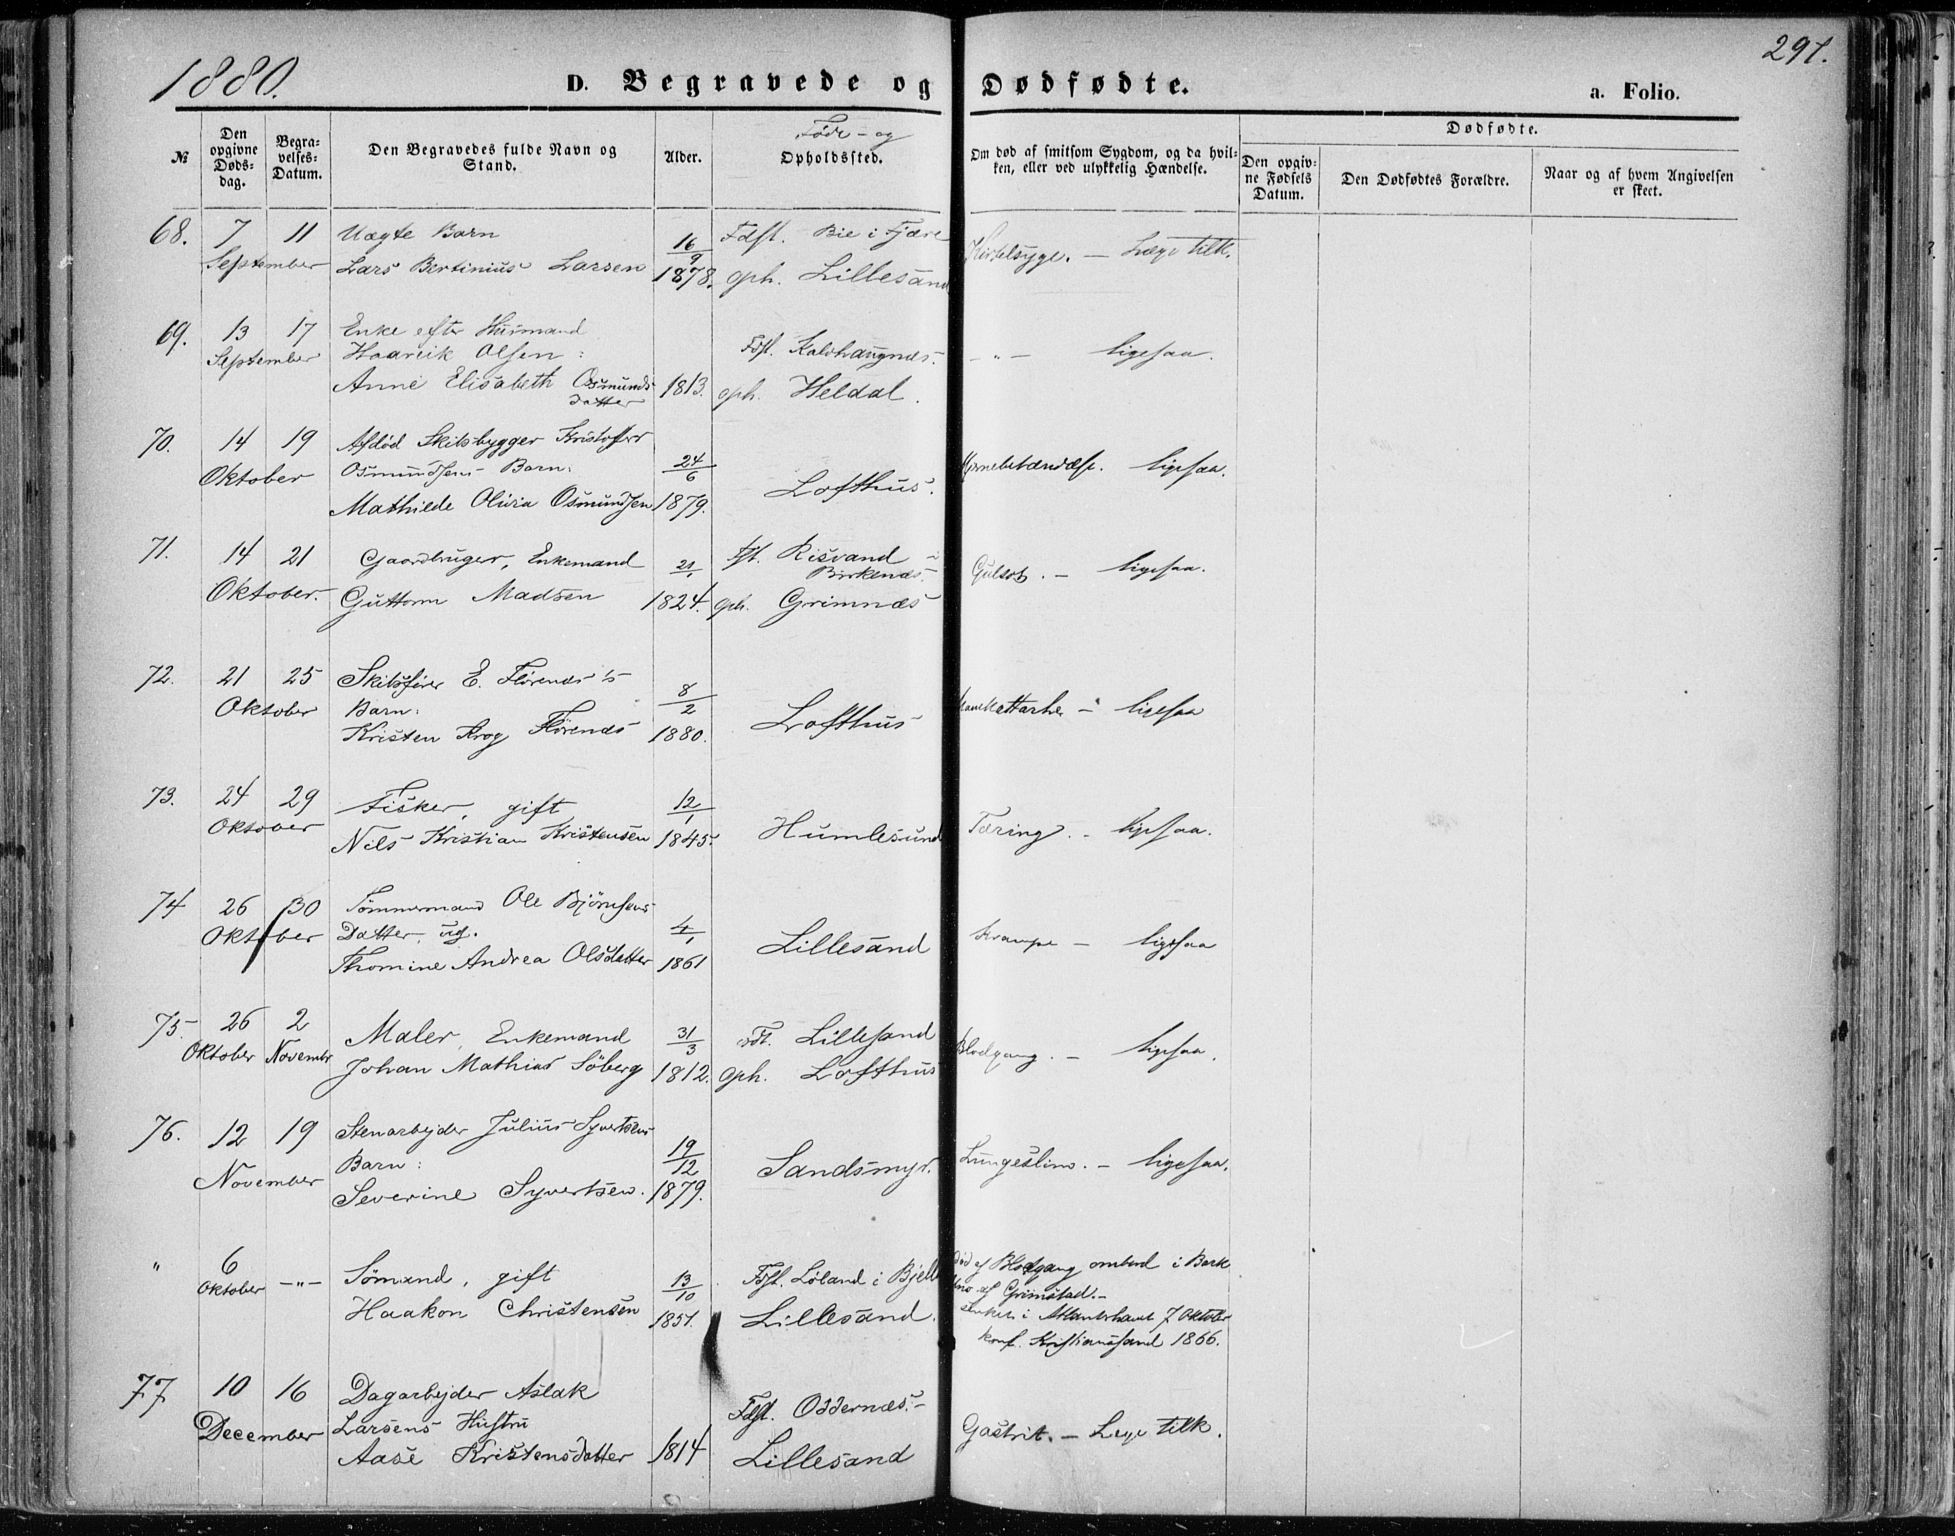 1880.
D. Begravede og Dødfødte.
a. Folio.
291.
№
Den opgivne Døds-dag.
Begra-velses-Datum.
Den Begravedes fulde Navn og Stand.
Alder.
Føde- og Opholdssted.
Om død af smitsom Sygdom, og da hvil-ken, eller ved ulykkelig Hændelse.
Dødfødte.
Den opgiv-ne Fødsels Datum.
Den Dødfødtes Forældre.
Naar og af hvem Angivelsen er skeet.
68. 7 11 Uægte Barn 16/9 Fdst. Bie i Fjære
September Lars Bertinius Larsen 1878. oph. Lillesand Kirtelsyge. — Læge tilk.
69. 13 17 Enke efter Husmand
September Haaveik Olsen: Fdst. Kalvhaugnæs. — " — ligesaa.
Anne Elisabeth Osmunds-datter 1813. oph. Heldal.
70. 14 19 Afdød Skibsbygger Kristoffer
Oktober Osmundsens Barn: 24/6 Hjernebetændelse. ligesaa.
Mathilde Olivia Osmundsen 1879. Lofthus.
71. 14 21 Gaardbruger, Enkemand 21/1 Fst. Risvand i Birkenæs. Gulsot. — ligesaa.
Oktober. Guttorm Madsen 1824. oph. Grimnæs
72. 21 25 Skibsfører E. Førends's
Oktober Barn: 8/2 ligesaa
Kristen Krog Førends 1880. Lofthus
73. 24 29 Fisker, gift 12/1
Oktober Nils Kristian Kristensen 1845. Humlesund Tæring. — ligesaa.
74 26 30 Tømmermand Ole Bjørnsens
Oktober Datter, ug. 4/1 Lillesand Krampe — ligesaa
Thomine Andrea Olsdatter 1861
75 26 2 Maler, Enkemand 31/3 Fdt. Lillesand
Oktober Novembr Johan Mathias Söberg 1812. oph. Lofthus Blodgang. — ligesaa.
76. 12 19 Stenarbejder Julius Syvertsens
November Barn: 19/12 Sandsmyr. Lungeslim. — ligesaa.
Severine Syvertsen. 1879.
" 6 Oktober — " — Sømand, gift 13/10 Fdst. Løland i Bjell død af Blodgang ombord i Bark
Haakon Christensen 1851. Lillesand. af Grimstad.—
senket i Atlanterhavet 7 Oktober
konf. Kristianssand 1866.
77 10 16 Dagarbejder Aslak
December Larsens Hustru Fdst. Oddernæs.—
Aase Kristensdatter 1814 Lillesand Gastrit. — Læge tilk.